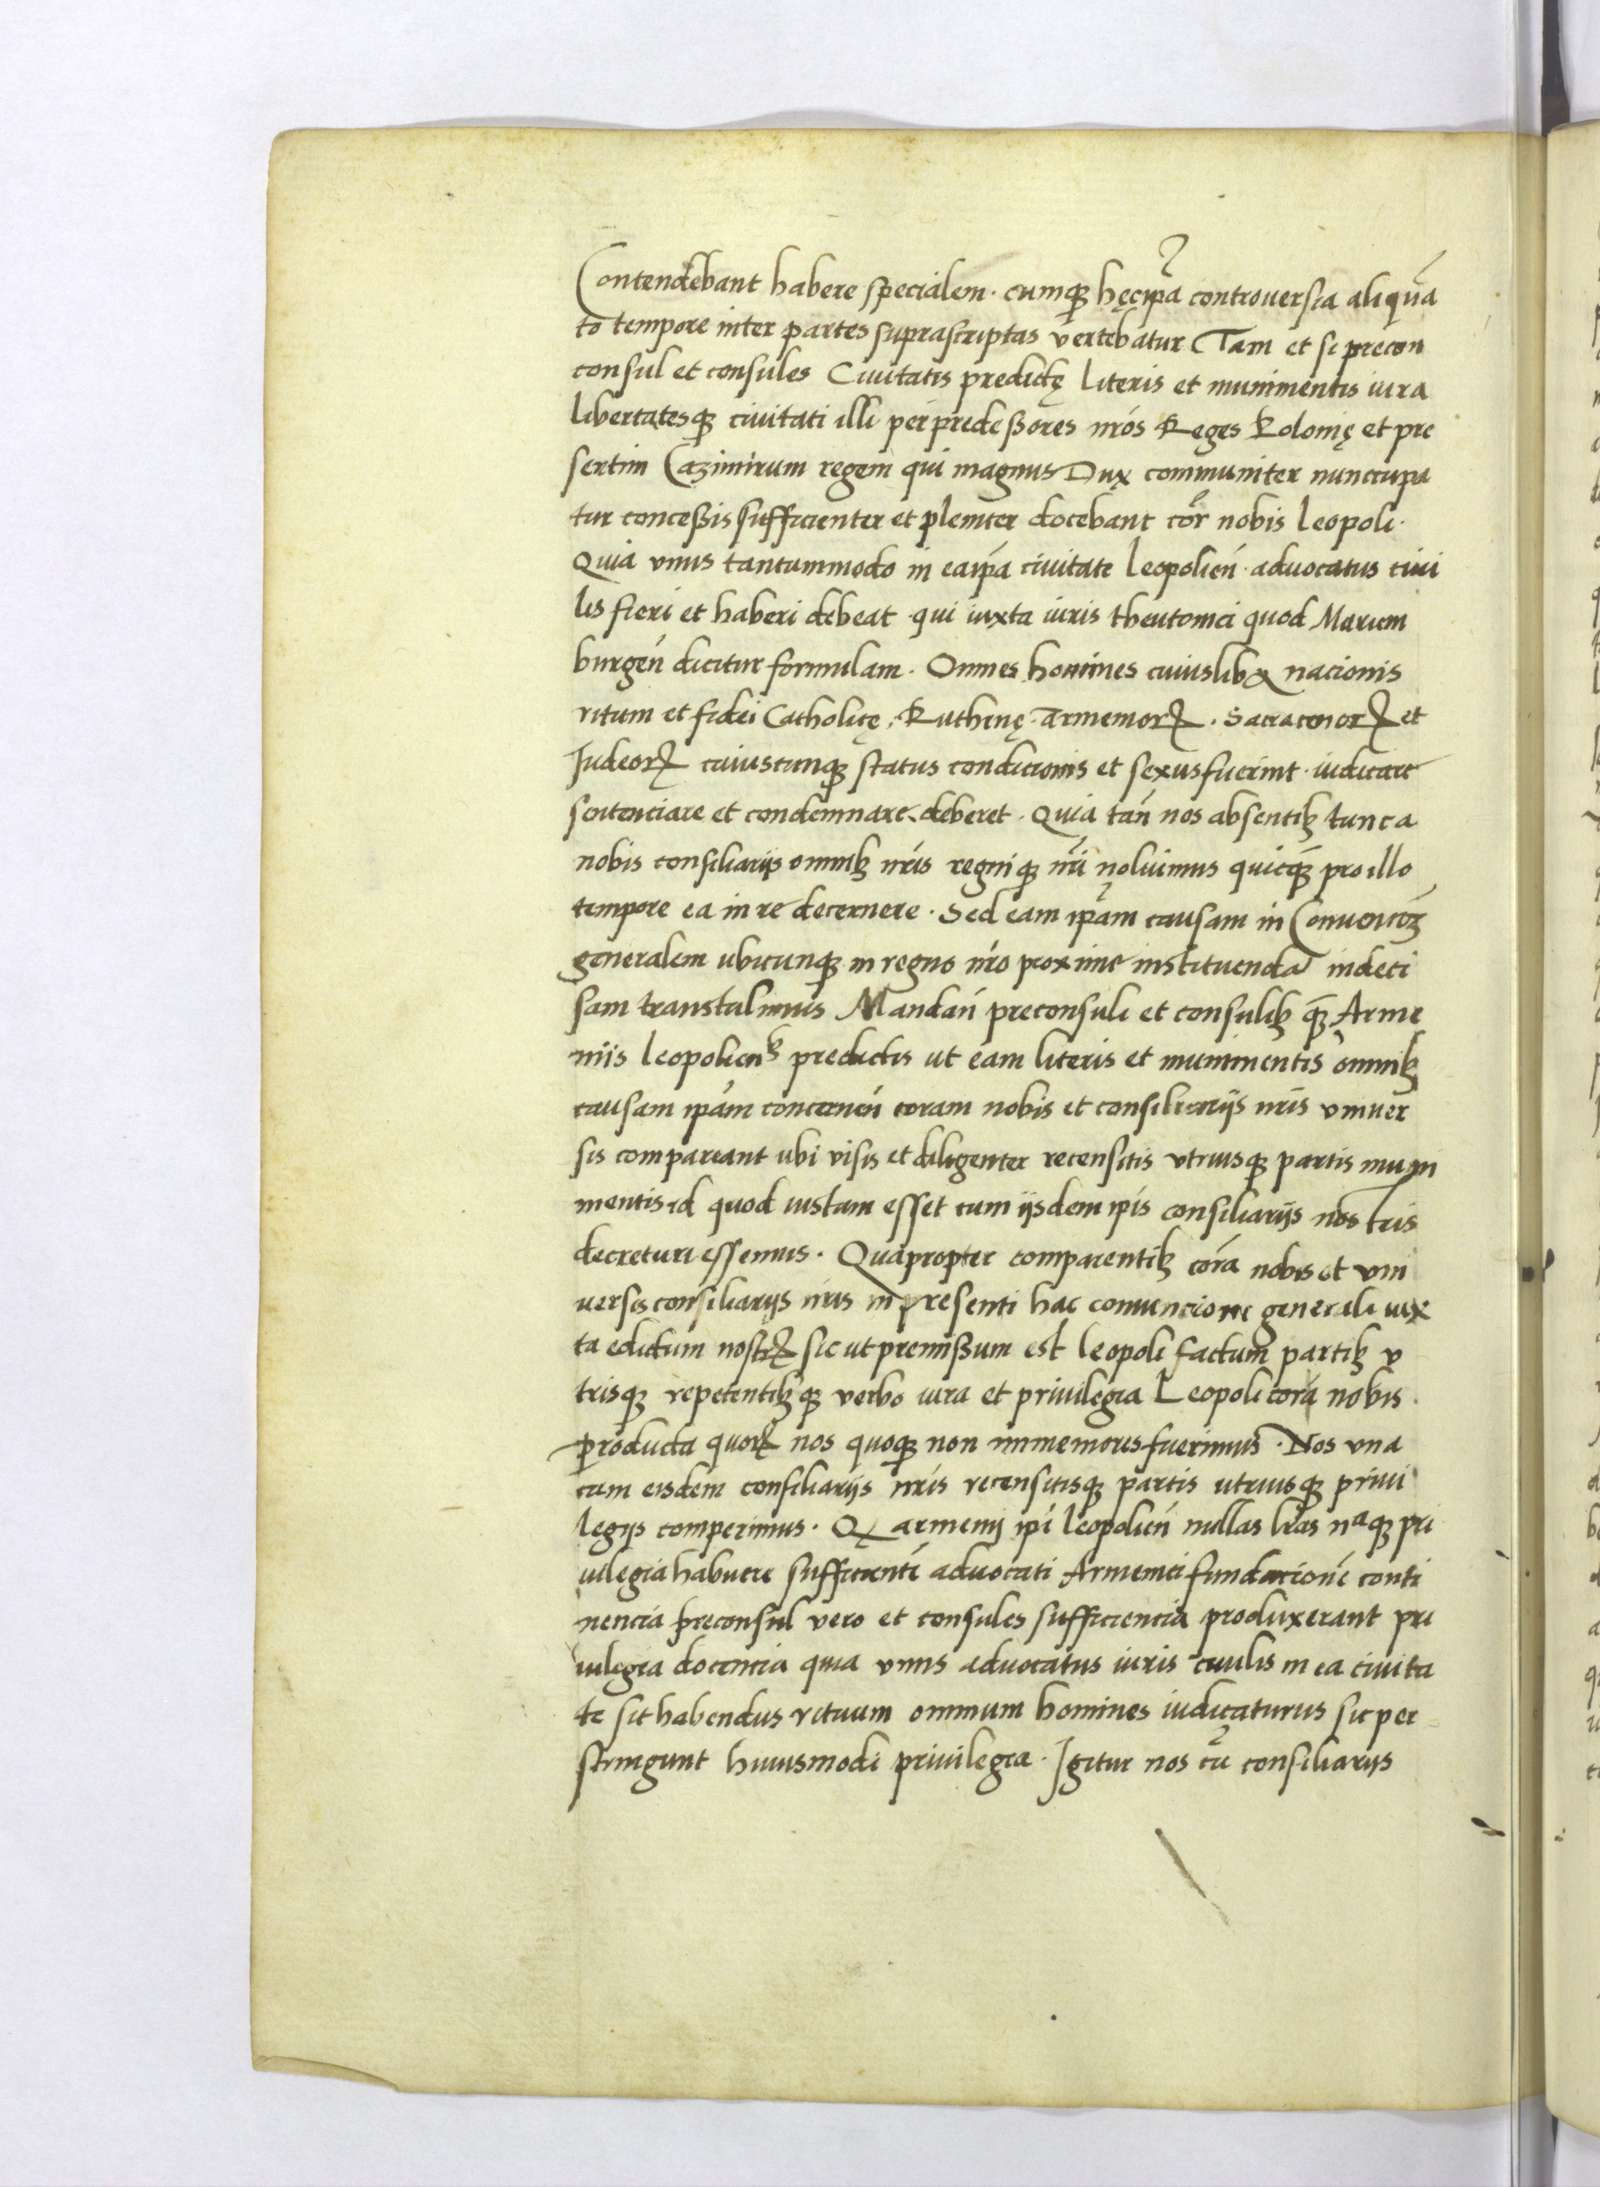 Contendebant habere specialem · cumqꝫ hęcip̄a controuersia aliqua᷑
to tempore inter partes suprascriptas vertebatur Tam et si precon
consul et consules Ciuitatis predictę literis et munimentis iura
libertatesqꝫ ciuitati illi per predeßores nr̄os Reges Polonię et pre
sertim Cazimirum regem qui magnus Dux communiter nunccupa
tur conceßis sufficienter et pleniter docebant cor̄ nobis Leopoli ·
Quia vnus tantummodo in eaip̄a ciuitate Leopolien̄ · aduocatus ciui
lis fieri et haberi debeat · qui iuxta iuris theutonici quod
burgen̄ dicitur formulam · Omnes homines cuiuslibꝫ nacionis
ritum et fidei Catholicę · Ruthenę · Armenorꝝ · Saracenorꝝ et
Iudeorꝝ cuiuscunqꝫ status condicionis et sexus fuerint · iudicare
sentenciare et condemnare deberet · Quia tan̄ nos absentibꝫ tunc a
nobis consiliarijs omnibꝫ nr̄is regniqꝫ nr̄i noluimus quicqꝫ̄ pro illo
tempore ea in re decernere · Sed eam ip̄am causam in Conuencōꝫ
generalem ubicunqꝫ in regno nr̄o proxime instituendā indeci
sam transtulimus Mandan̄ preconsuli et consulibꝫ qꝫ̄ Arme
niis Leopolienbꝫ predictis ut eam literis et munimentis omnibꝫ
causam ip̄am concernen̄ coram nobis et consiliarijs nr̄is vniuer
sis compareant ubi visis et diligenter recensitis vtriusqꝫ partis muni
mentis id quod iustum esset cum ijsdem ip̄is consiliarijs nostris
decreturi essemus · Quapropter comparentibꝫ corā nobis et vni
uersis consiliarijs nr̄is in presenti hac conuencione generali iux
ta edictum nostrꝝ sic ut premißum est Leopoli factum partibꝫ v
trisqꝫ repetentibꝫqꝫ verbo iura et priuilegia Leopoli corā nobis
producta quorꝝ nos quoqꝫ non immemores fuerimus · Nos vna
cum eisdem consiliarijs nr̄is recensitisqꝫ partis utriusqꝫ priui
legijs comperimus · Qꝫ armenij ip̄i Leopolien̄ nullas lr̄as naqꝫ pri
uilegia habuere sufficientē aduocati Armenici fundacionē conti
nencia preconsul vero et consules sufficiencia produxerant pri
uilegia docencia quia vnus aduocatus iuris ciuilis in ea ciuita
te sit habendus rituum omnium homines iudicaturus sic per
stringunt huiusmodi priuilegia · Igitur nos cū consiliarijs